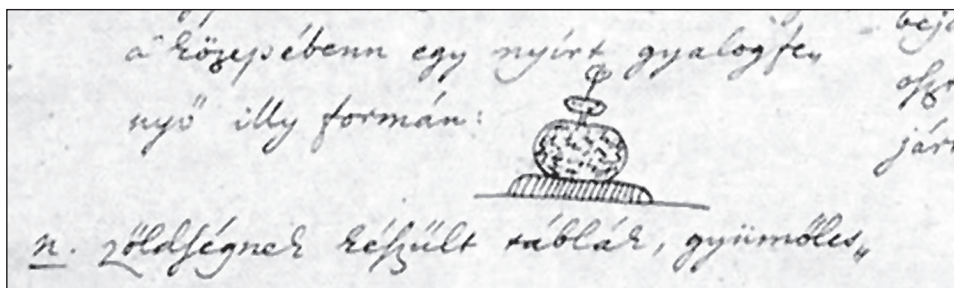 a' közepébenn egy nyírt gyalogfe„
nyő illy formán:
n. zöldségnek készült táblák, gyümőlcs„
bejá
járt